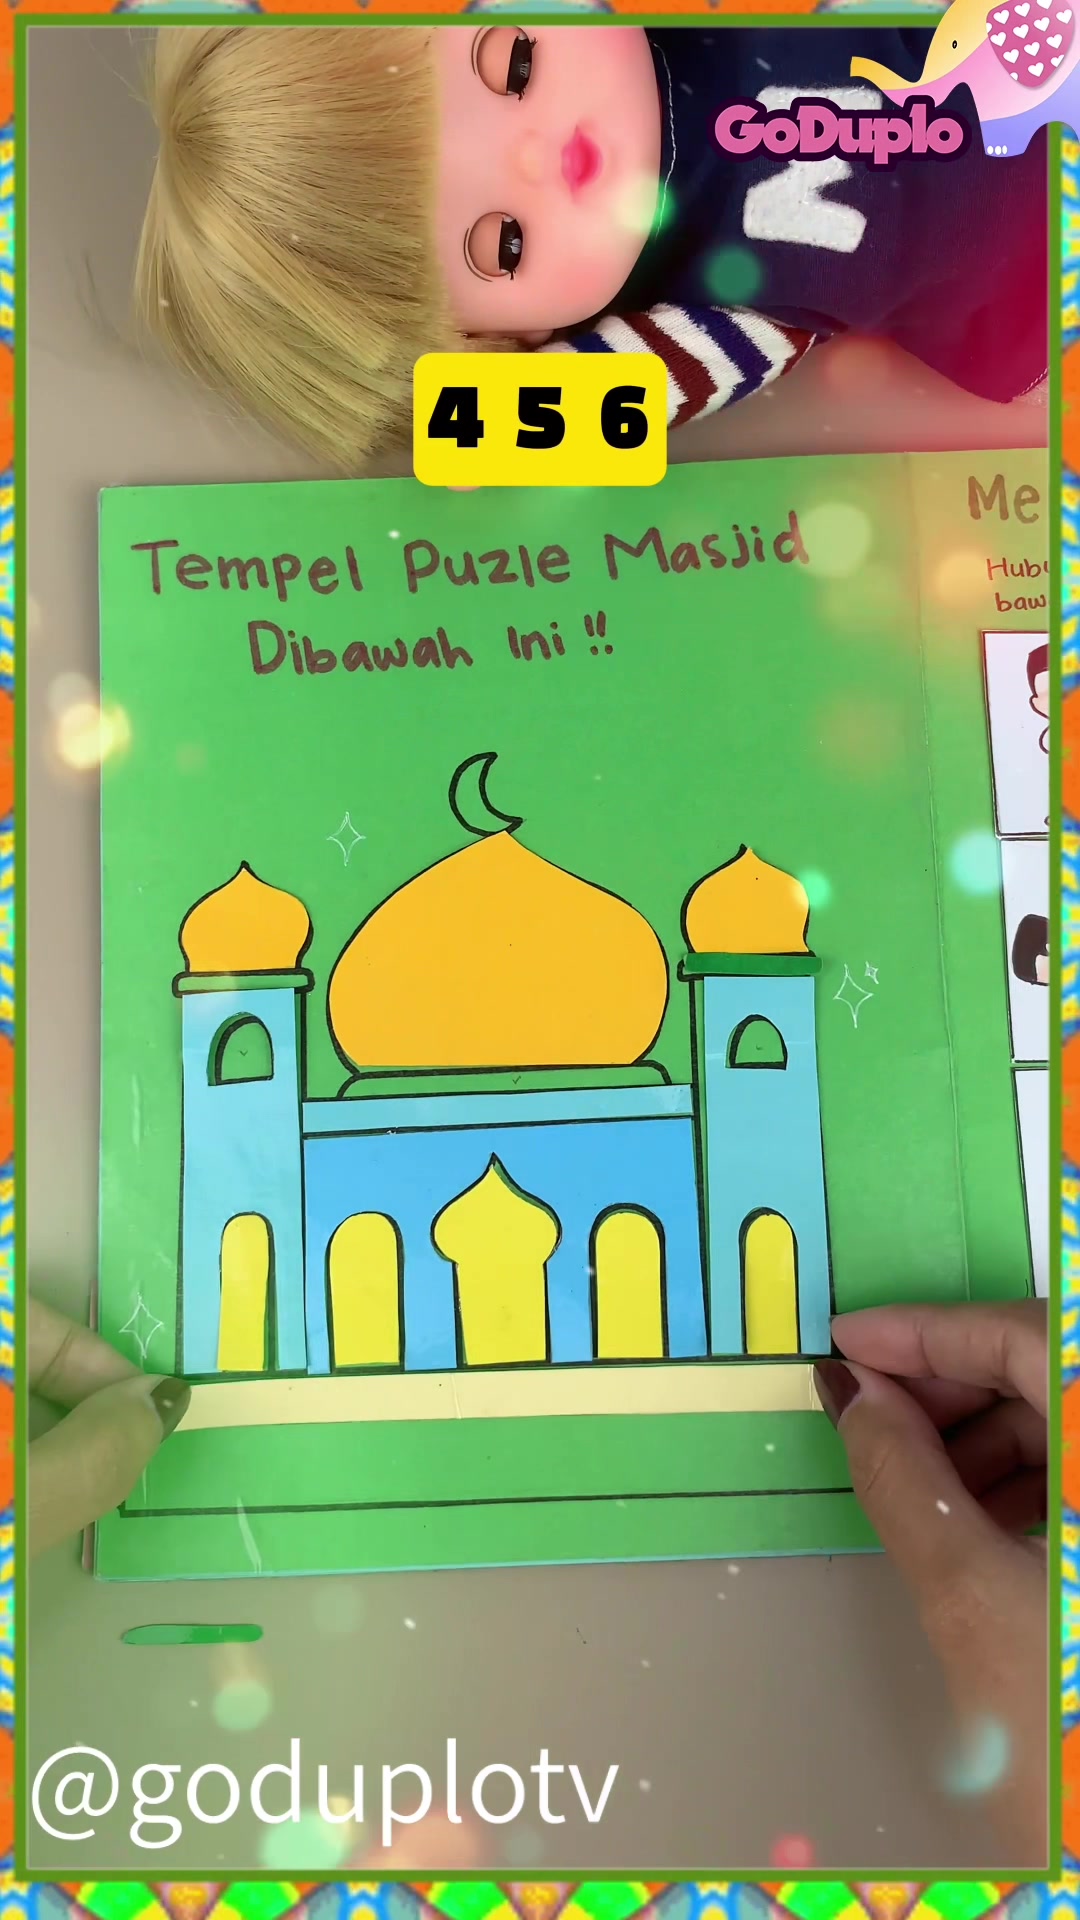 GoDuplo
M
4 5 6
Tempel Puzle Masjid
Dibawah Ini !!
Me
Hubu
baw
@goduplotv